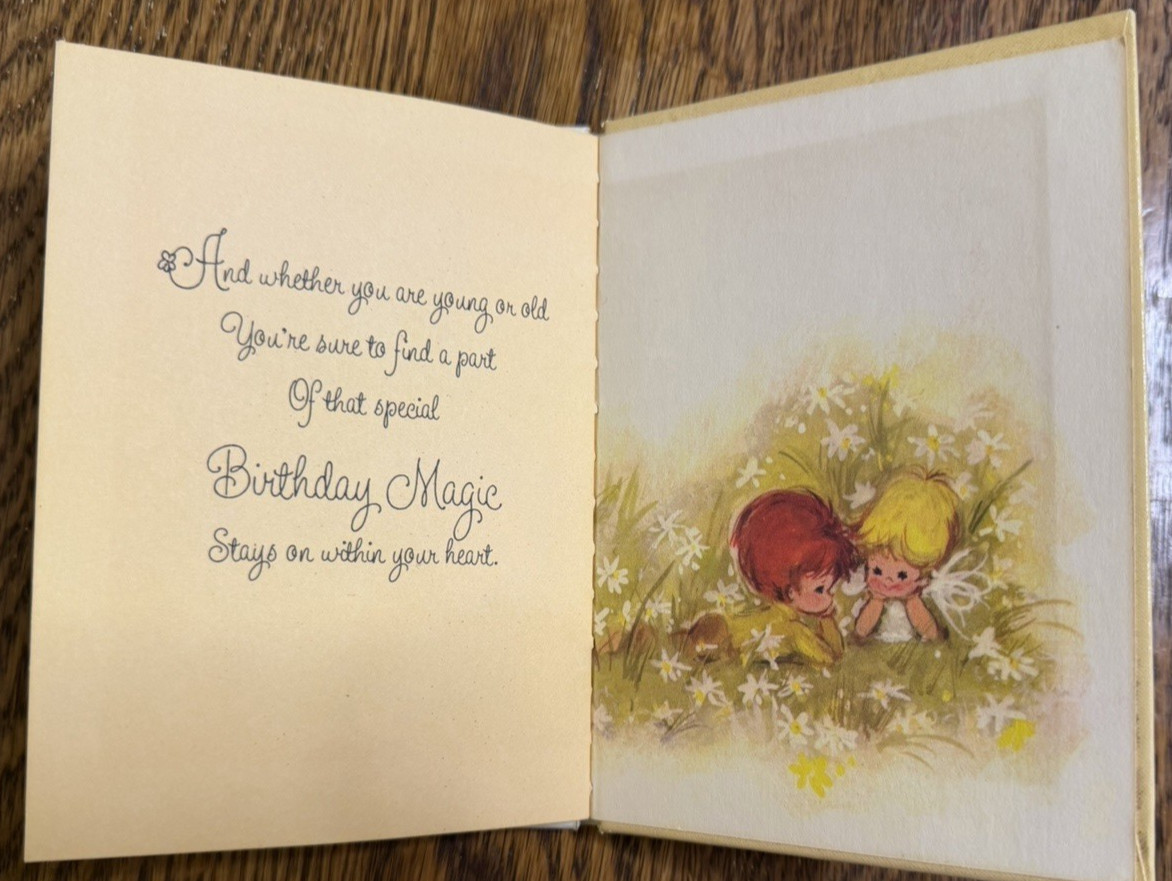 And whether you are young or old
You're sure to find a part
Of that special
Birthday Magic
Stays on within your heart.